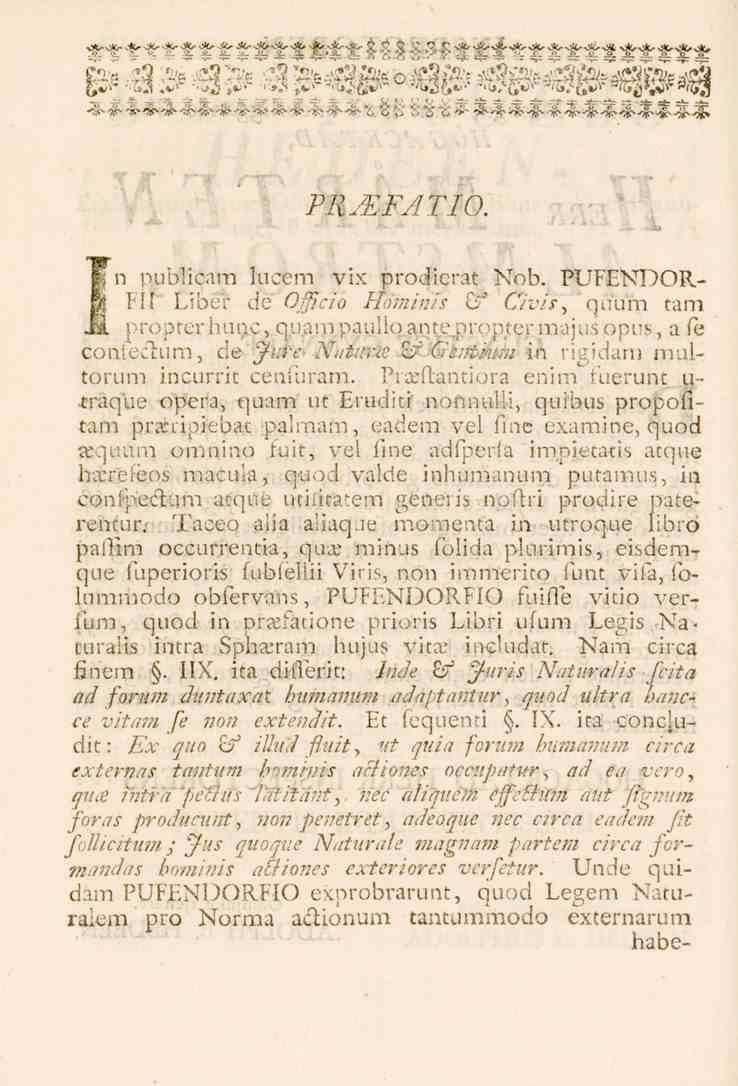 PRÆFATIO.
In publicam lucem vix prodierat Nob. PUFENDOR-
FII Liber de Officio Hominis & Civis, quum tam
propter hunc, quam paullo ante propter majus opus, a ſe
confectum, de Jure Naturæ & Gentium in rigidam mul-
torum incurrit cenſuram. Præſtantiora enim fuerunt u-
traque opera, quam ut Eruditi nonnulli, quibus propoſi-
tam præripiebat palmam, eadem vel ſine examine, quod
æquum omnino fuit, vel ſine adſperſa impietatis atque
hæreſeos macula, quod valde inhumanum putamus, in
conſpectum atque utilitatem generis noſtri prodire pate-
rentur. Taceo alia aliaque momenta in utroque libro
paſſim occurrentia, quæ minus ſolida plurimis, eisdem-
que ſuperioris ſubſellii Viris, non immerito ſunt viſa, ſo-
lummodo obſervans, PUFENDORFIO fuiſſe vitio ver-
ſum, quod in præfatione prioris Libri uſum Legis Na-
turalis intra Sphæram hujus vitæ includat. Nam circa
finem §. IIX. ita diſſerit: Inde & Juris Naturalis ſcita
ad forum duntaxat humanum adaptantur, quod ultra hanc-
ce vitam ſe non extendit. Et ſequenti §. IX. ita conclu-
dit: Ex quo & illud fluit, ut quia forum humanum circa
externas tantum hominis actiones occupatur, ad ea vero,
quæ intra pectus latitant, nec aliquem effectum aut ſignum
foras producunt, non penetret, adeoque nec circa eadem ſit
ſollicitum; Jus quoque Naturale magnam partem circa for-
mandas hominis actiones exteriores verſetur. Unde qui-
dam PUFENDORFIO exprobrarunt, quod Legem Natu-
ralem pro Norma actionum tantummodo externarum
habe-